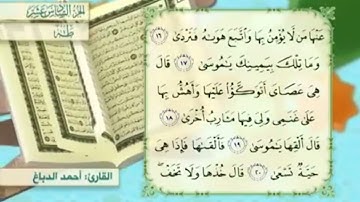 الجزء السادس عشر
طه
عَنْهَا مَن لَّا يُؤْمِنُ بِهَا وَاتَّبَعَ هَوَىٰهُ فَتَرْدَىٰ ١٦
وَمَا تِلْكَ بِيَمِينِكَ يَٰمُوسَىٰ ١٧ قَالَ
هِىَ عَصَاىَ أَتَوَكَّؤُا۟ عَلَيْهَا وَأَهُشُّ بِهَا
عَلَىٰ غَنَمِى وَلِىَ فِيهَا مَـَٔارِبُ أُخْرَىٰ ١٨
قَالَ أَلْقِهَا يَٰمُوسَىٰ ١٩ فَأَلْقَىٰهَا فَإِذَا هِىَ
حَيَّةٌ تَسْعَىٰ ٢٠ قَالَ خُذْهَا وَلَا تَخَفْ ۖ
القارئ: أحمد الدباغ